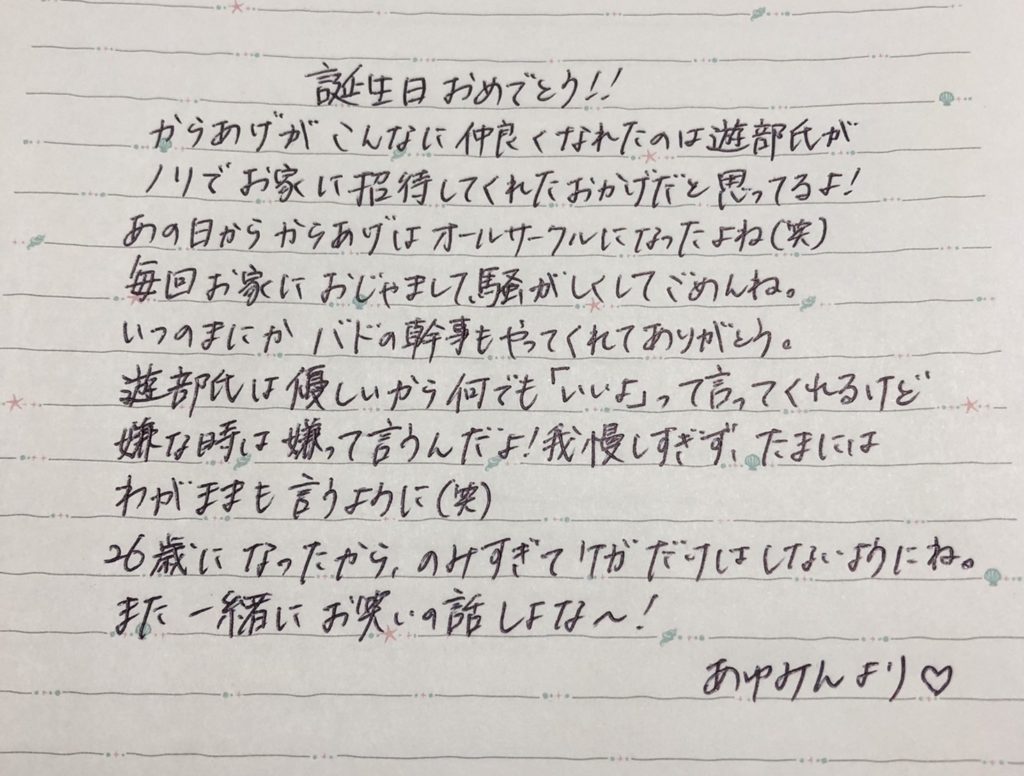 誕生日おめでとう!!
からあげが こんなに仲良くなれたのは遊部氏が
ノリでお家に招待してくれたおかげだと思ってるよ!
あの日からからあげはオールサークルになったよね(笑)
毎回お家におじゃまして、騒がしくしてごめんね。
いつのまにかバドの幹事もやってくれてありがとう。
遊部氏は優しいから何でも「いいよ」って言ってくれるけど
嫌な時は嫌って言うんだよ!我慢しすぎず、たまには
わがままも言うように(笑)
26歳になったから、のみすぎてケガだけはしないようにね。
また一緒にお笑いの話しよな〜!
あゆみんより♡